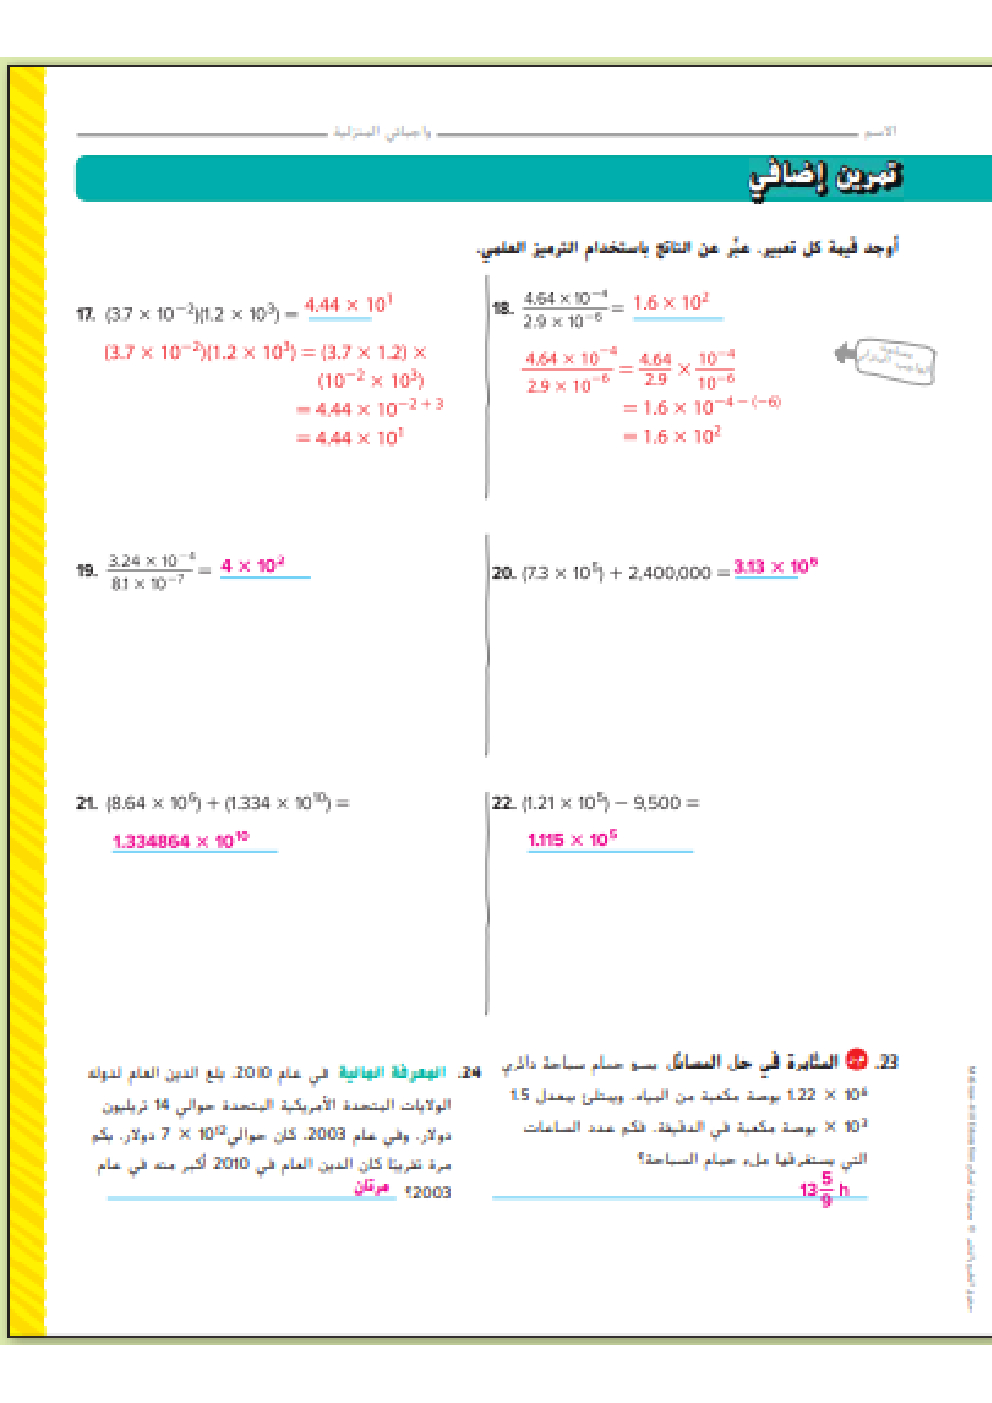 الاسم واجباتي المنزلية
تمرين إضافي
أوجد قيمة كل تعبير. عبّر عن الناتج باستخدام الترميز العلمي.
17. (3.7 × 10⁻²)(1.2 × 10³) = 4.44 × 10¹
(3.7 × 10⁻²)(1.2 × 10³) = (3.7 × 1.2) ×
(10⁻² × 10³)
= 4.44 × 10⁻² ⁺ ³
= 4.44 × 10¹
18. 4.64 × 10⁻⁴ / 2.9 × 10⁻⁶ = 1.6 × 10²
4.64 × 10⁻⁴ / 2.9 × 10⁻⁶ = 4.64 / 2.9 × 10⁻⁴ / 10⁻⁶
= 1.6 × 10⁻⁴ ⁻ ⁽⁻⁶⁾
= 1.6 × 10²
19. 3.24 × 10⁻⁴ / 8.1 × 10⁻⁷ = 4 × 10²
20. (7.3 × 10⁵) + 2,400,000 = 3.13 × 10⁶
21. (8.64 × 10⁶) + (1.334 × 10¹⁰) =
1.334864 × 10¹⁰
22. (1.21 × 10⁵) − 9,500 =
1.115 × 10⁵
23. المثابرة في حل المسائل يسع حمام سباحة دائري
1.22 × 10⁶ بوصة مكعبة من المياه. ويمتلئ بمعدل 1.5
× 10³ بوصة مكعبة في الدقيقة. فكم عدد الساعات
التي يستغرقها ملء حمام السباحة؟
13 5/9 h
24. المعرفة المالية في عام 2010، بلغ الدين العام لدولة
الولايات المتحدة الأمريكية المتحدة حوالي 14 تريليون
دولار. وفي عام 2003، كان حوالي 7 × 10¹² دولار. بكم
مرة تقريبًا كان الدين العام في 2010 أكبر منه في عام
2003؟ مرتان